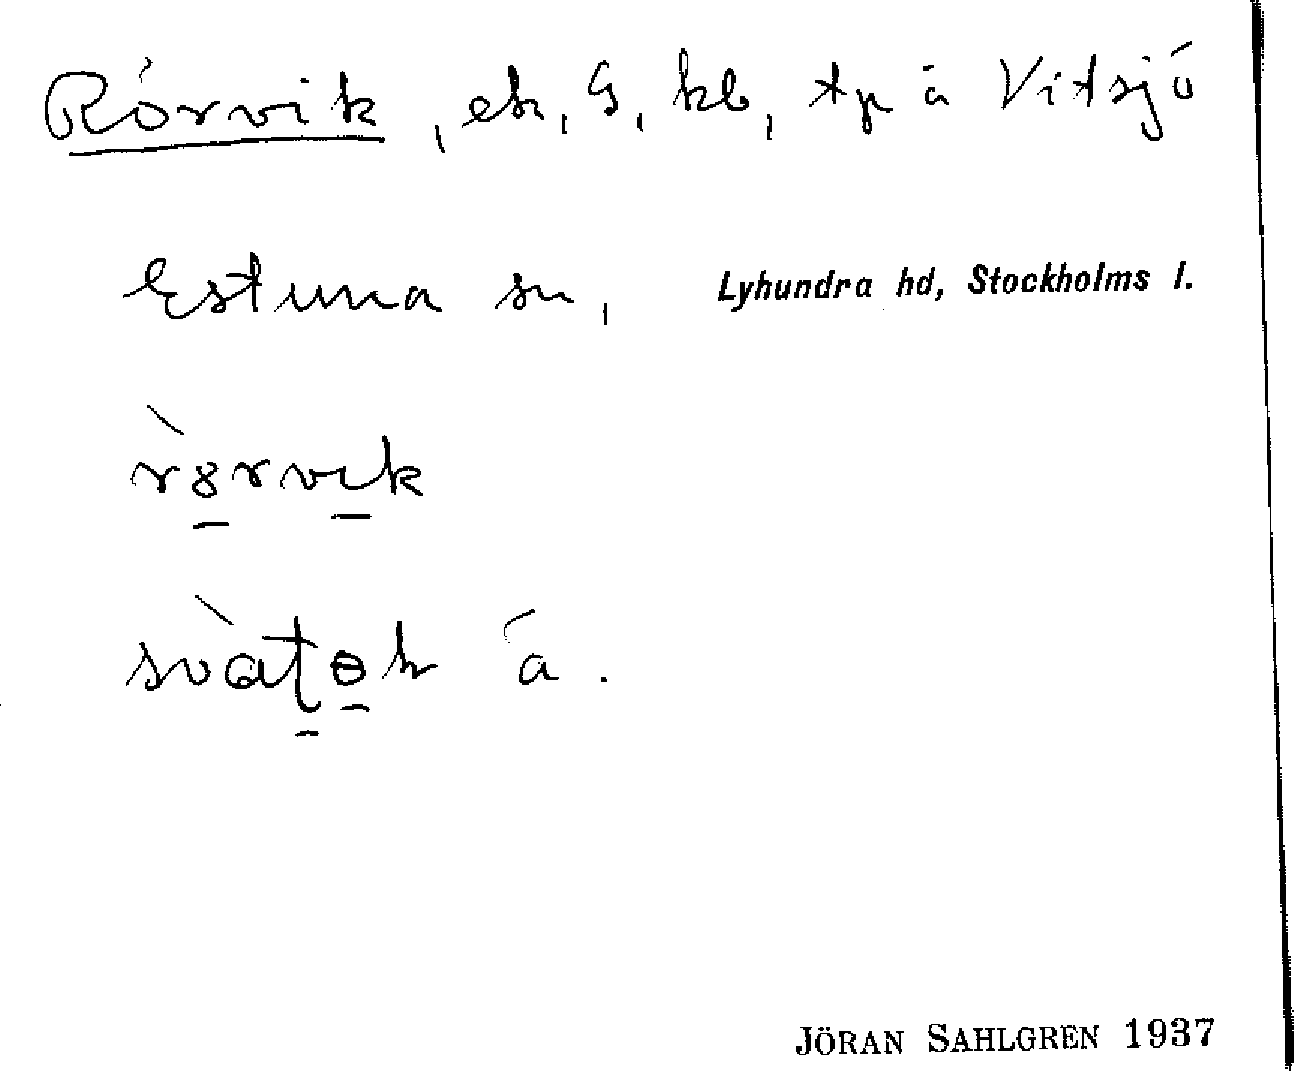 Rörvik, ek, G, kb, tp å Vitsjö
Estuna sn, Lyhundra hd, Stockholms l.
rörvik
å.
JÖRAN SAHLGREN 1937